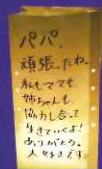 パパ、
頑張ったね。
私もママも
姉ちゃんも
協力し合って
生きていくよ!
ありがとう。
大好きです。